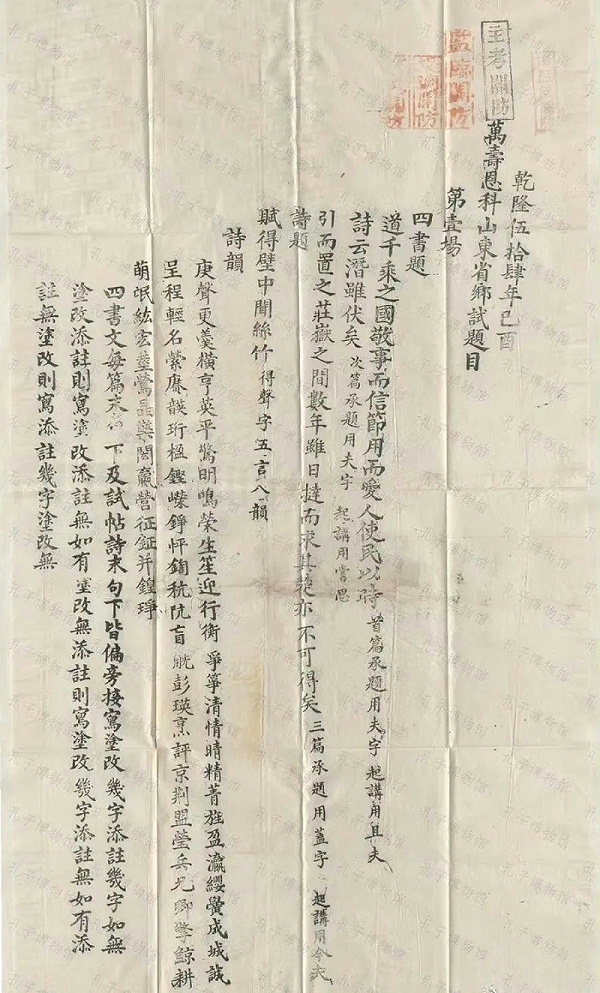 主考關防
監臨關防
關防
乾隆伍拾肆年己酉
萬壽恩科山東省鄉試題目
第壹場
四書題
道千乘之國敬事而信節用而愛人使民以時 首篇承題用夫字 起講用且夫
詩云潛雖伏矣 次篇承題用夫字 起講用嘗思
引而置之莊嶽之間數年雖日撻而求其楚亦不可得矣 三篇承題用蓋字 起講用今夫
詩題
賦得壁中聞絲竹 得聲字五言八韻
詩韻
庚聲更羹橫亨英平驚明鳴榮生笙迎行衡爭箏清情晴精菁旌盈瀛纓黌成城誠
呈程輕名縈廎韺珩楹鏗嶸錚怦鏑秔阬盲觥彭瑛烹評京荊盟瑩兵兄卿擎鯨耕
萌氓紘宏莖鶯罌閎嬴營征鉦并鍠琤
四書文每篇末句下及試帖詩末句下皆偏旁接寫塗改幾字添註幾字如無
塗改添註則寫塗改添註無如有塗改無添註則寫塗改幾字添註無如有添
註無塗改則寫添註幾字塗改無